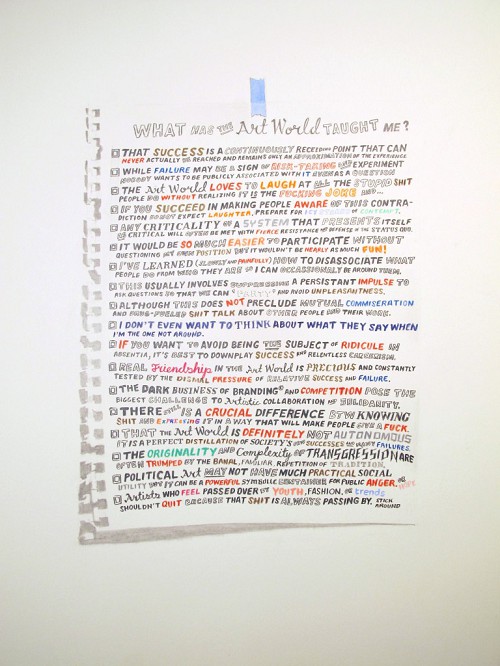 WHAT HAS THE Art World TAUGHT ME?
THAT SUCCESS IS A CONTINUOUSLY RECEDING POINT THAT CAN
NEVER ACTUALLY BE REACHED AND REMAINS ONLY AN APPROXIMATION OF THE EXPERIENCE
WHILE FAILURE MAY BE A SIGN OF RISK-TAKING AND EXPERIMENT
NOBODY WANTS TO BE PUBLICLY ASSOCIATED WITH IT EVEN AS A QUESTION
THE Art World LOVES TO LAUGH AT ALL THE STUPID SHIT
PEOPLE DO WITHOUT REALIZING IT IS THE FUCKING JOKE AND...
IF YOU SUCCEED IN MAKING PEOPLE AWARE OF THIS CONTRA-
DICTION DO NOT EXPECT LAUGHTER, PREPARE FOR CONTEMPT.
ANY CRITICALITY OF A SYSTEM THAT PRESENTS ITSELF
AS CRITICAL WILL OFTEN BE MET WITH FIERCE RESISTANCE OR DEFENSE OF THE STATUS QUO.
IT WOULD BE SO MUCH EASIER TO PARTICIPATE WITHOUT
QUESTIONING MY OWN POSITION BUT IT WOULDN'T BE NEARLY AS MUCH FUN!
I'VE LEARNED (SLOWLY AND PAINFULLY) HOW TO DISASSOCIATE WHAT
PEOPLE DO FROM WHO THEY ARE SO I CAN OCCASIONALLY BE AROUND THEM.
THIS USUALLY INVOLVES SUPPRESSING A PERSISTANT IMPULSE TO
ASK QUESTIONS SO THAT WE CAN "PARTY" AND AVOID UNPLEASANTNESS.
ALTHOUGH THIS DOES NOT PRECLUDE MUTUAL COMMISERATION
AND DRUG-FUELED SHIT TALK ABOUT OTHER PEOPLE AND THEIR WORK.
I DON'T EVEN WANT TO THINK ABOUT WHAT THEY SAY WHEN
I'M THE ONE NOT AROUND.
IF YOU WANT TO AVOID BEING THE SUBJECT OF RIDICULE IN
ABSENTIA, IT'S BEST TO DOWNPLAY SUCCESS AND RELENTLESS CAREERISM.
REAL Friendship IN THE Art World IS PRECIOUS AND CONSTANTLY
TESTED BY THE DISMAL PRESSURE OF RELATIVE SUCCESS AND FAILURE.
THE DARK BUSINESS OF BRANDING® AND COMPETITION POSE THE
BIGGEST CHALLENGE TO Artistic COLLABORATION OR SOLIDARITY.
THERE STILL IS A CRUCIAL DIFFERENCE BTW KNOWING
SHIT AND EXPRESSING IT IN A WAY THAT WILL MAKE PEOPLE GIVE A FUCK.
THAT THE Art World IS DEFINITELY NOT AUTONOMOUS
IT IS A PERFECT DISTILLATION OF SOCIETY'S SUCCESSES OR MANY FAILURES.
THE ORIGINALITY AND Complexity OF TRANSGRESSION ARE
OFTEN TRUMPED BY THE BANAL, FAMILIAR REPETITION OF TRADITION.
POLITICAL Art MAY NOT HAVE MUCH PRACTICAL SOCIAL
UTILITY BUT IT CAN BE A POWERFUL SYMBOLIC CONTAINER FOR PUBLIC ANGER, OR
Artists WHO FEEL PASSED OVER BY YOUTH, FASHION, OR trends
SHOULDN'T QUIT BECAUSE THAT SHIT IS ALWAYS PASSING BY. STICK AROUND